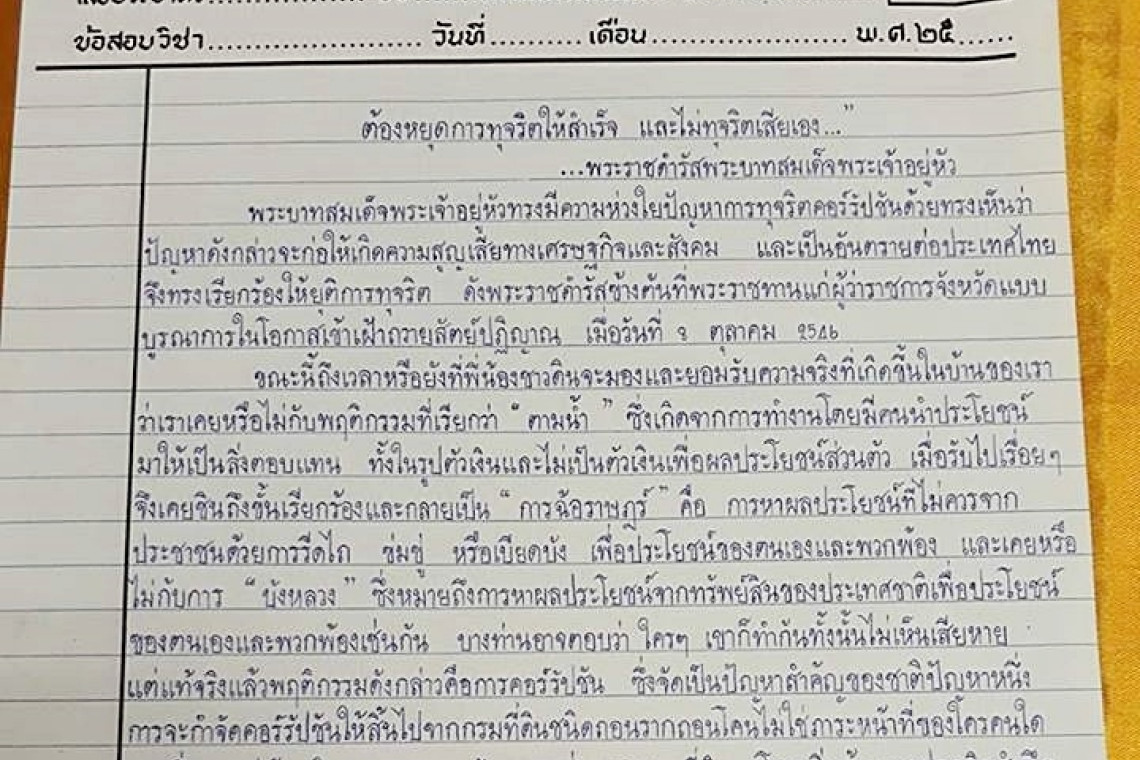 ข้อสอบวิชา........................ วันที่..........เดือน..................... พ.ศ.๒๕......
ต้องหยุดการทุจริตให้สำเร็จ และไม่ทุจริตเสียเอง..."
...พระราชดำรัสพระบาทสมเด็จพระเจ้าอยู่หัว
พระบาทสมเด็จพระเจ้าอยู่หัวทรงมีความห่วงใยปัญหาการทุจริตคอร์รัปชันด้วยทรงเห็นว่า
ปัญหาดังกล่าวจะก่อให้เกิดความสูญเสียทางเศรษฐกิจและสังคม และเป็นอันตรายต่อประเทศไทย
จึงทรงเรียกร้องให้ยุติการทุจริต ดังพระราชดำรัสข้างต้นที่พระราชทานแก่ผู้ว่าราชการจังหวัดแบบ
บูรณาการในโอกาสเข้าเฝ้าถวายสัตย์ปฏิญาณ เมื่อวันที่ ตุลาคม 2546
ขณะนี้ถึงเวลาหรือยังที่พี่น้องชาวดินจะมองและยอมรับความจริงที่เกิดขึ้นในบ้านของเรา
ว่าเราเคยหรือไม่กับพฤติกรรมที่เรียกว่า " ตามน้ำ " ซึ่งเกิดจากการทำงานโดยมีคนนำประโยชน์
มาให้เป็นสิ่งตอบแทน ทั้งในรูปตัวเงินและไม่เป็นตัวเงินเพื่อผลประโยชน์ส่วนตัว เมื่อรับไปเรื่อยๆ
จึงเคยชินถึงขั้นเรียกร้องและกลายเป็น " การฉ้อราษฎร์ " คือ การหาผลประโยชน์ที่ไม่ควรจาก
ประชาชนด้วยการรีดไถ ข่มขู่ หรือเบียดบัง เพื่อประโยชน์ของตนเองและพวกพ้อง และเคยหรือ
ไม่กับการ "บังหลวง" ซึ่งหมายถึงการหาผลประโยชน์จากทรัพย์สินของประเทศชาติเพื่อประโยชน์
ของตนเองและพวกพ้องเช่นกัน บางท่านอาจตอบว่า ใครๆ เขาก็ทำกันทั้งนั้นไม่เห็นเสียหาย
แต่แท้จริงแล้วพฤติกรรมดังกล่าวคือการคอร์รัปชัน ซึ่งจัดเป็นปัญหาสำคัญของชาติปัญหาหนึ่ง
การจะกำจัดคอร์รัปชันให้สิ้นไปจากกรมที่ดินชนิดถอนรากถอนโคนไม่ใช่ภาระหน้าที่ของใครคนใด